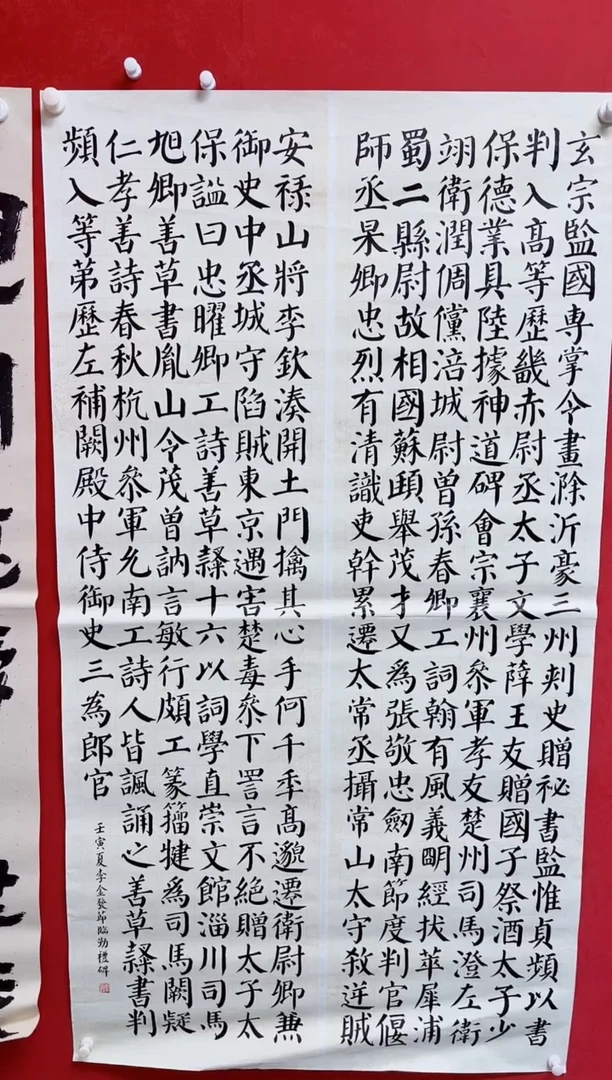 玄宗監國專掌令畫滁沂豪三州刾史贈秘書監惟貞頻以書
判入高等歷畿赤尉丞太子文學薛王友贈國子祭酒太子少
保德業具陸據神道碑會宗襄州叅軍孝友楚州司馬澄左衛
翊衛潤倜儻涪城尉曾孫春卿工詞翰有風義明經拔萃犀浦
蜀二縣尉故相國蘇頲舉茂才又爲張敬忠劒南節度判官偃
師丞杲卿忠烈有清識吏幹累遷太常丞攝常山太守殺逆賊
安祿山將李欽湊開土門擒其心手何千秊高邈遷衛尉卿兼
御史中丞城守陷賊東京遇害楚毒叅下詈言不絕贈太子太
保謚曰忠曜卿工詩善草隸十六以詞學直崇文館淄川司馬
旭卿善草書胤山令茂曾訥言敏行頗工篆籀犍爲司馬闕疑
仁孝善詩春秋杭州叅軍允南工詩人皆諷誦之善草隸書判
頻入等第歷左補闕殿中侍御史三為郎官
壬寅夏李全發節臨勤禮碑